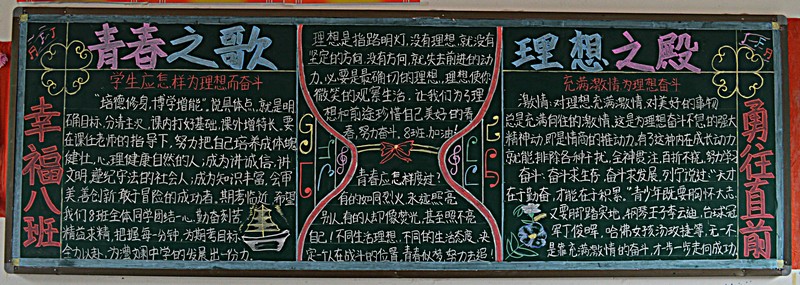 青春之歌
学生应怎样为理想而奋斗
"培德修身,博学增能",说具体点,就是明
确目标,分清主义,课内打好基础,课外增特长,要
在课任老师的指导下,努力把自己培养成体魄
健壮,心理健康自然的人;成为讲诚信,讲
文明,遵纪守法的社会人;成为知识丰富,会审
美,善创新,敢于冒险的成功者,期考临近,希望
我们8班全体同学团结一心,勤奋刻苦,
精益求精,把握每一分钟,为期考目标
全力以赴,为澧澜中学的发展出一份力.
幸福八班
理想是指路明灯,没有理想,就没有
坚定的方向,没有方向,就失去前进的动
力,必要是最确切的理想,理想使你
微笑的观察生活,让我们为了理
想和前途珍惜自己美好的青
春,努力奋斗,8班,加油!
青春应怎样度过?
有的如同烈火永远照亮
别人,有的人却像荧光,甚至照不亮
自己!不同生活理想,不同的生活态度,决
定一个人在战斗的位置,青春似梦,努力去追!
理想之殿
充满激情为理想奋斗
激情,对理想充满激情,对美好的事物
总是充满向往的激情,这是为理想奋斗不息的强大
精神动,即是情商的推动力,有了这种内在成长动力
就能排除各种干扰,全神贯注,百折不挠,努力学习
奋斗:奋斗求生存,奋斗求发展,列宁说过:"天才
在于勤奋,才能在于积累."青少年既要胸怀大志
又要脚踏实地,钢琴王子李云迪,台球冠
军丁俊晖,哈佛女孩汤玫捷等,无一不
是靠充满激情的奋斗,才一步一步走向成功.
勇往直前